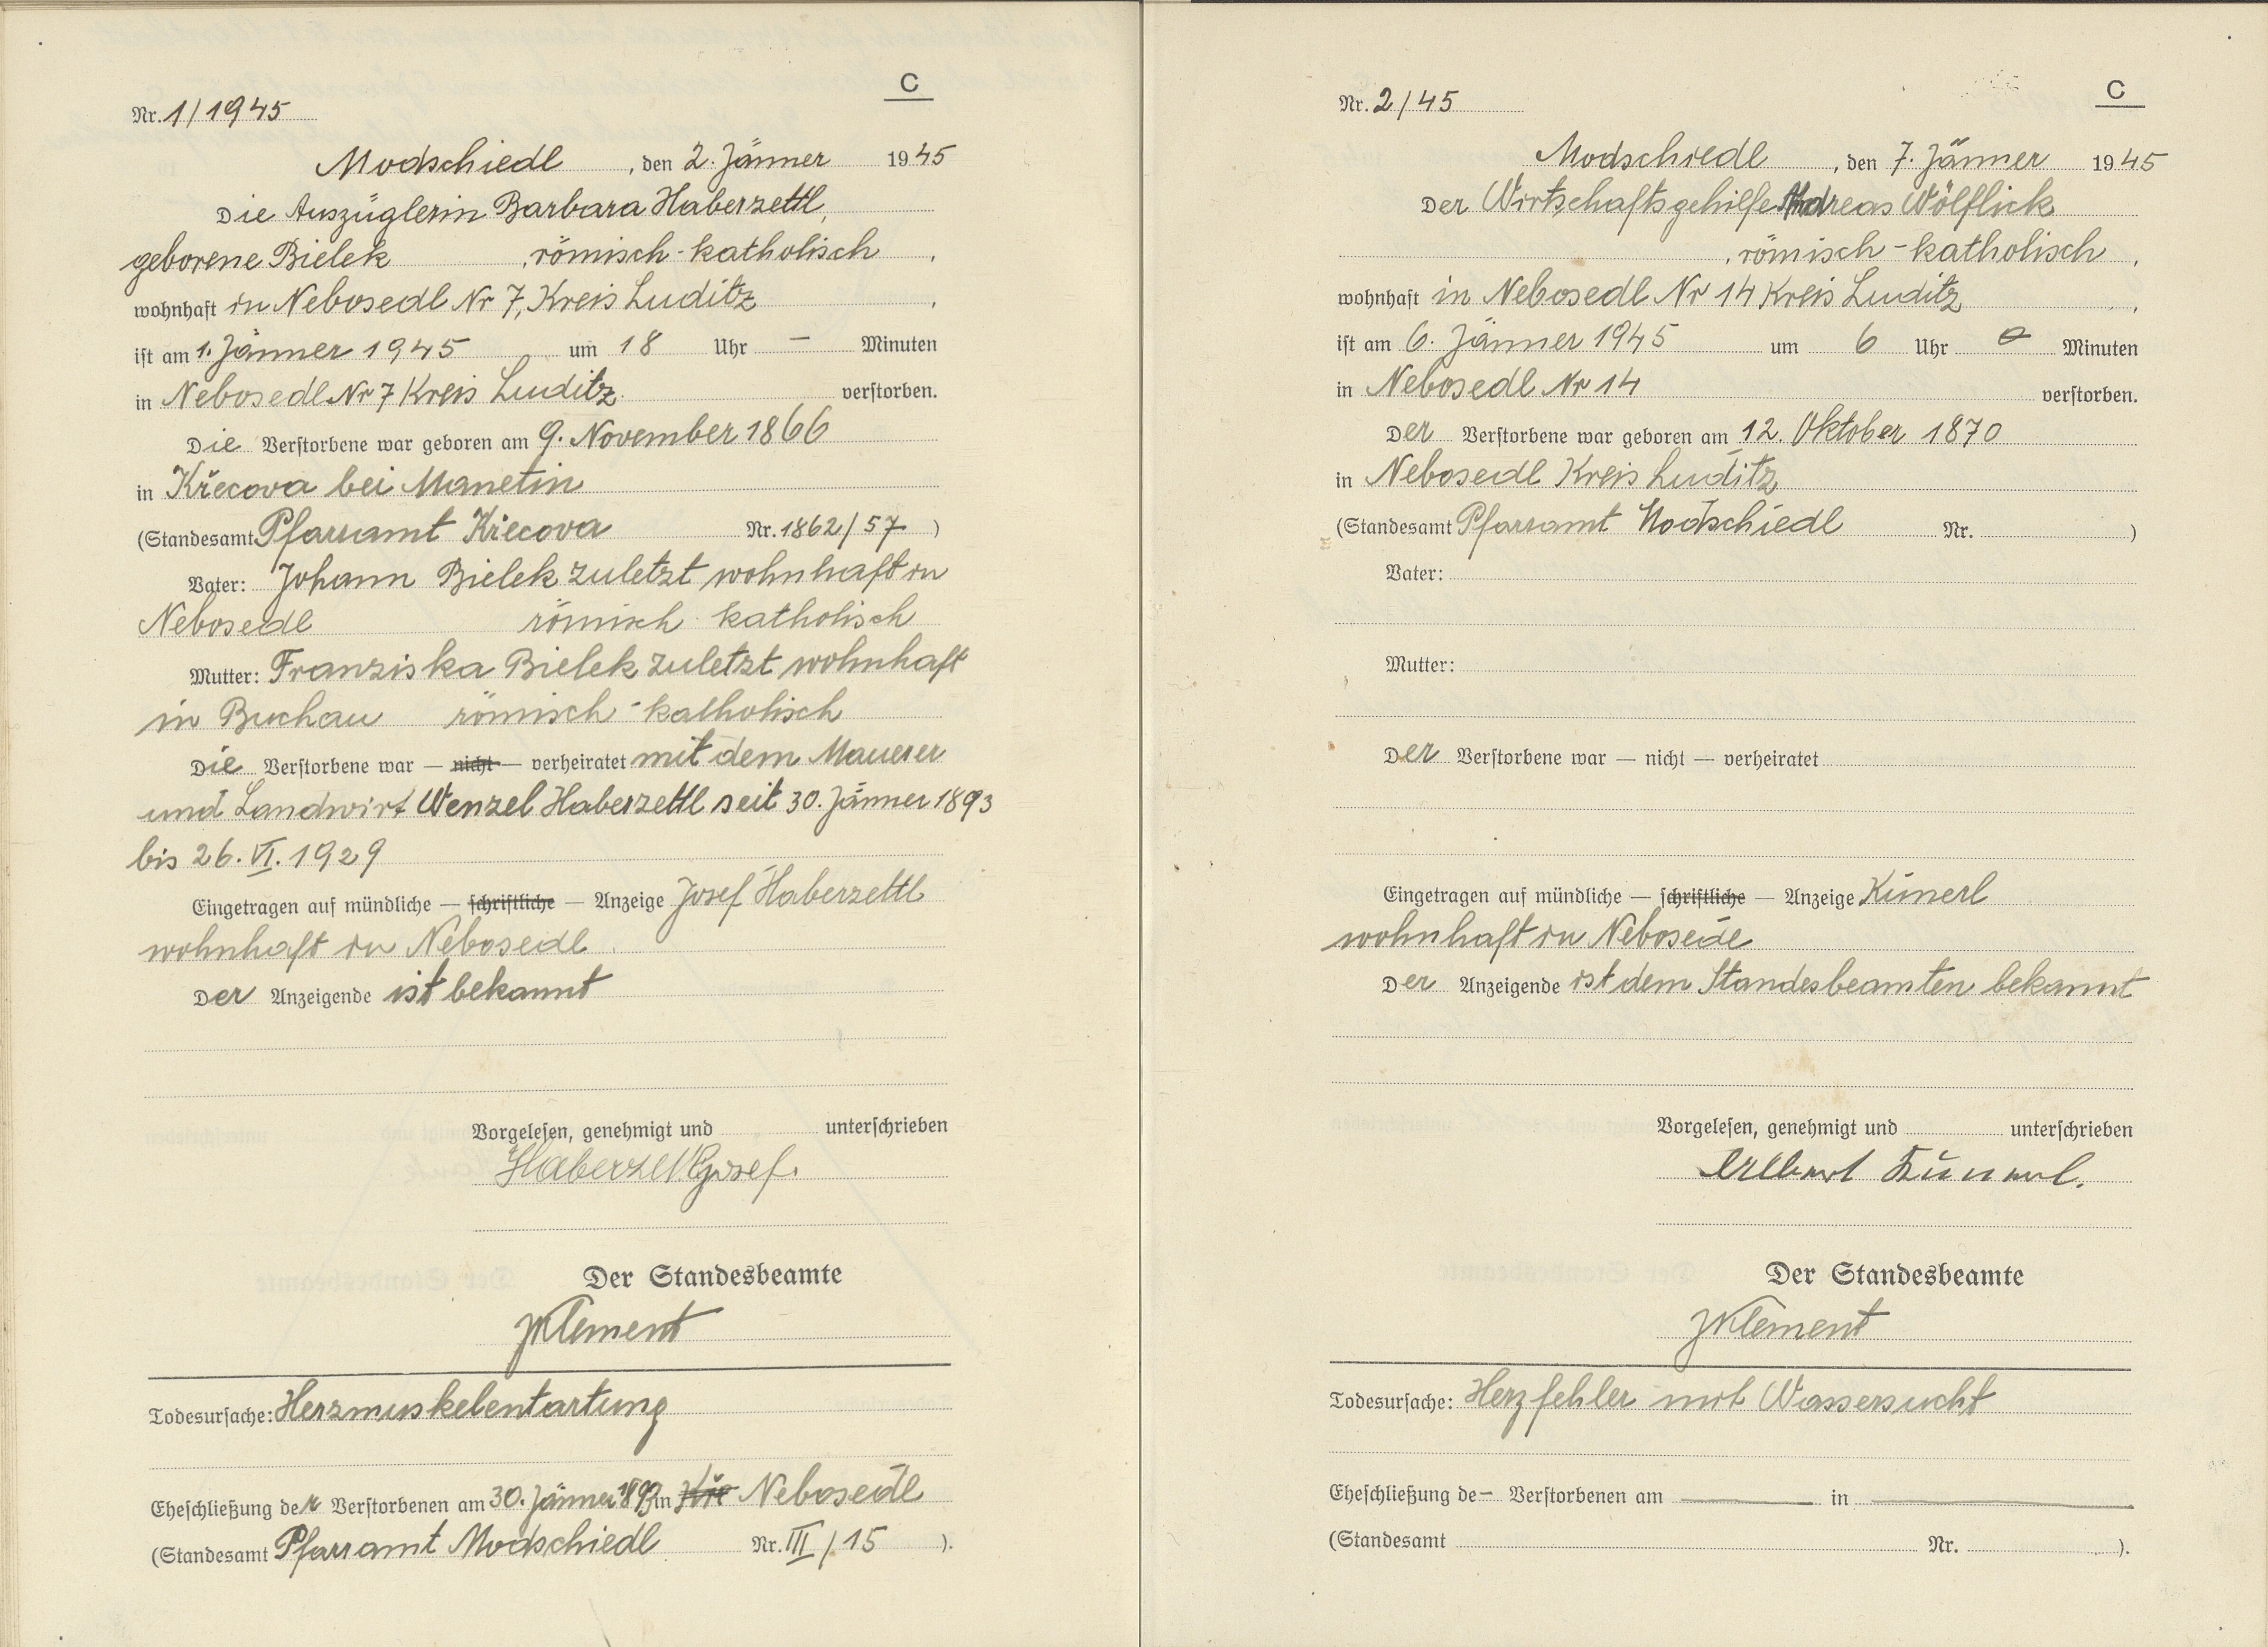 C
Nr. 1/1945
Modschiedl, den 2. Jänner 1945
Die Auszüglerin Barbara Haberzettl,
geborene Bielek, römisch-katholisch,
wohnhaft in Nebosedl Nr 7, Kreis Luditz,
ist am 1. Jänner 1945 um 18 Uhr – Minuten
in Nebosedl Nr 7 Kreis Luditz verstorben.
Die Verstorbene war geboren am 9. November 1866
in Křecova bei Manetin
(Standesamt Pfarramt Křecova Nr. 1862/57)
Vater: Johann Bielek zuletzt wohnhaft in
Nebosedl römisch katholisch
Mutter: Franziska Bielek zuletzt wohnhaft
in Buchau römisch-katholisch
Die Verstorbene war — nicht — verheiratet mit dem Mauerer
und Landwirt Wenzel Haberzettl seit 30. Jänner 1893
bis 26. VI. 1929
Eingetragen auf mündliche — schriftliche — Anzeige Josef Haberzettl
wohnhaft in Nebosedl.
Der Anzeigende ist bekannt
Vorgelesen, genehmigt und unterschrieben
Haberzettl Josef.
Der Standesbeamte
JKlement
Todesursache: Herzmuskelentartung
Eheschließung der Verstorbenen am 30. Jänner 1893 in Kře Nebosedl
(Standesamt Pfarramt Modschiedl Nr. III/15).
C
Nr. 2/45
Modschiedl, den 7. Jänner 1945
Der Wirtschaftsgehilfe Andreas Wölflick
, römisch-katholisch,
wohnhaft in Nebosedl Nr 14 Kreis Luditz,
ist am 6. Jänner 1945 um 6 Uhr 0 Minuten
in Nebosedl Nr 14 verstorben.
Der Verstorbene war geboren am 12. Oktober 1870
in Nebosedl Kreis Luditz
(Standesamt Pfarramt Modschiedl Nr. )
Vater:
Mutter:
Der Verstorbene war — nicht — verheiratet
Eingetragen auf mündliche — schriftliche — Anzeige Künerl
wohnhaft in Nebosedl
Der Anzeigende ist dem Standesbeamten bekannt
Vorgelesen, genehmigt und unterschrieben
Künerl.
Der Standesbeamte
JKlement
Todesursache: Herzfehler mit Wassersucht
Eheschließung de– Verstorbenen am — in —
(Standesamt Nr. ).